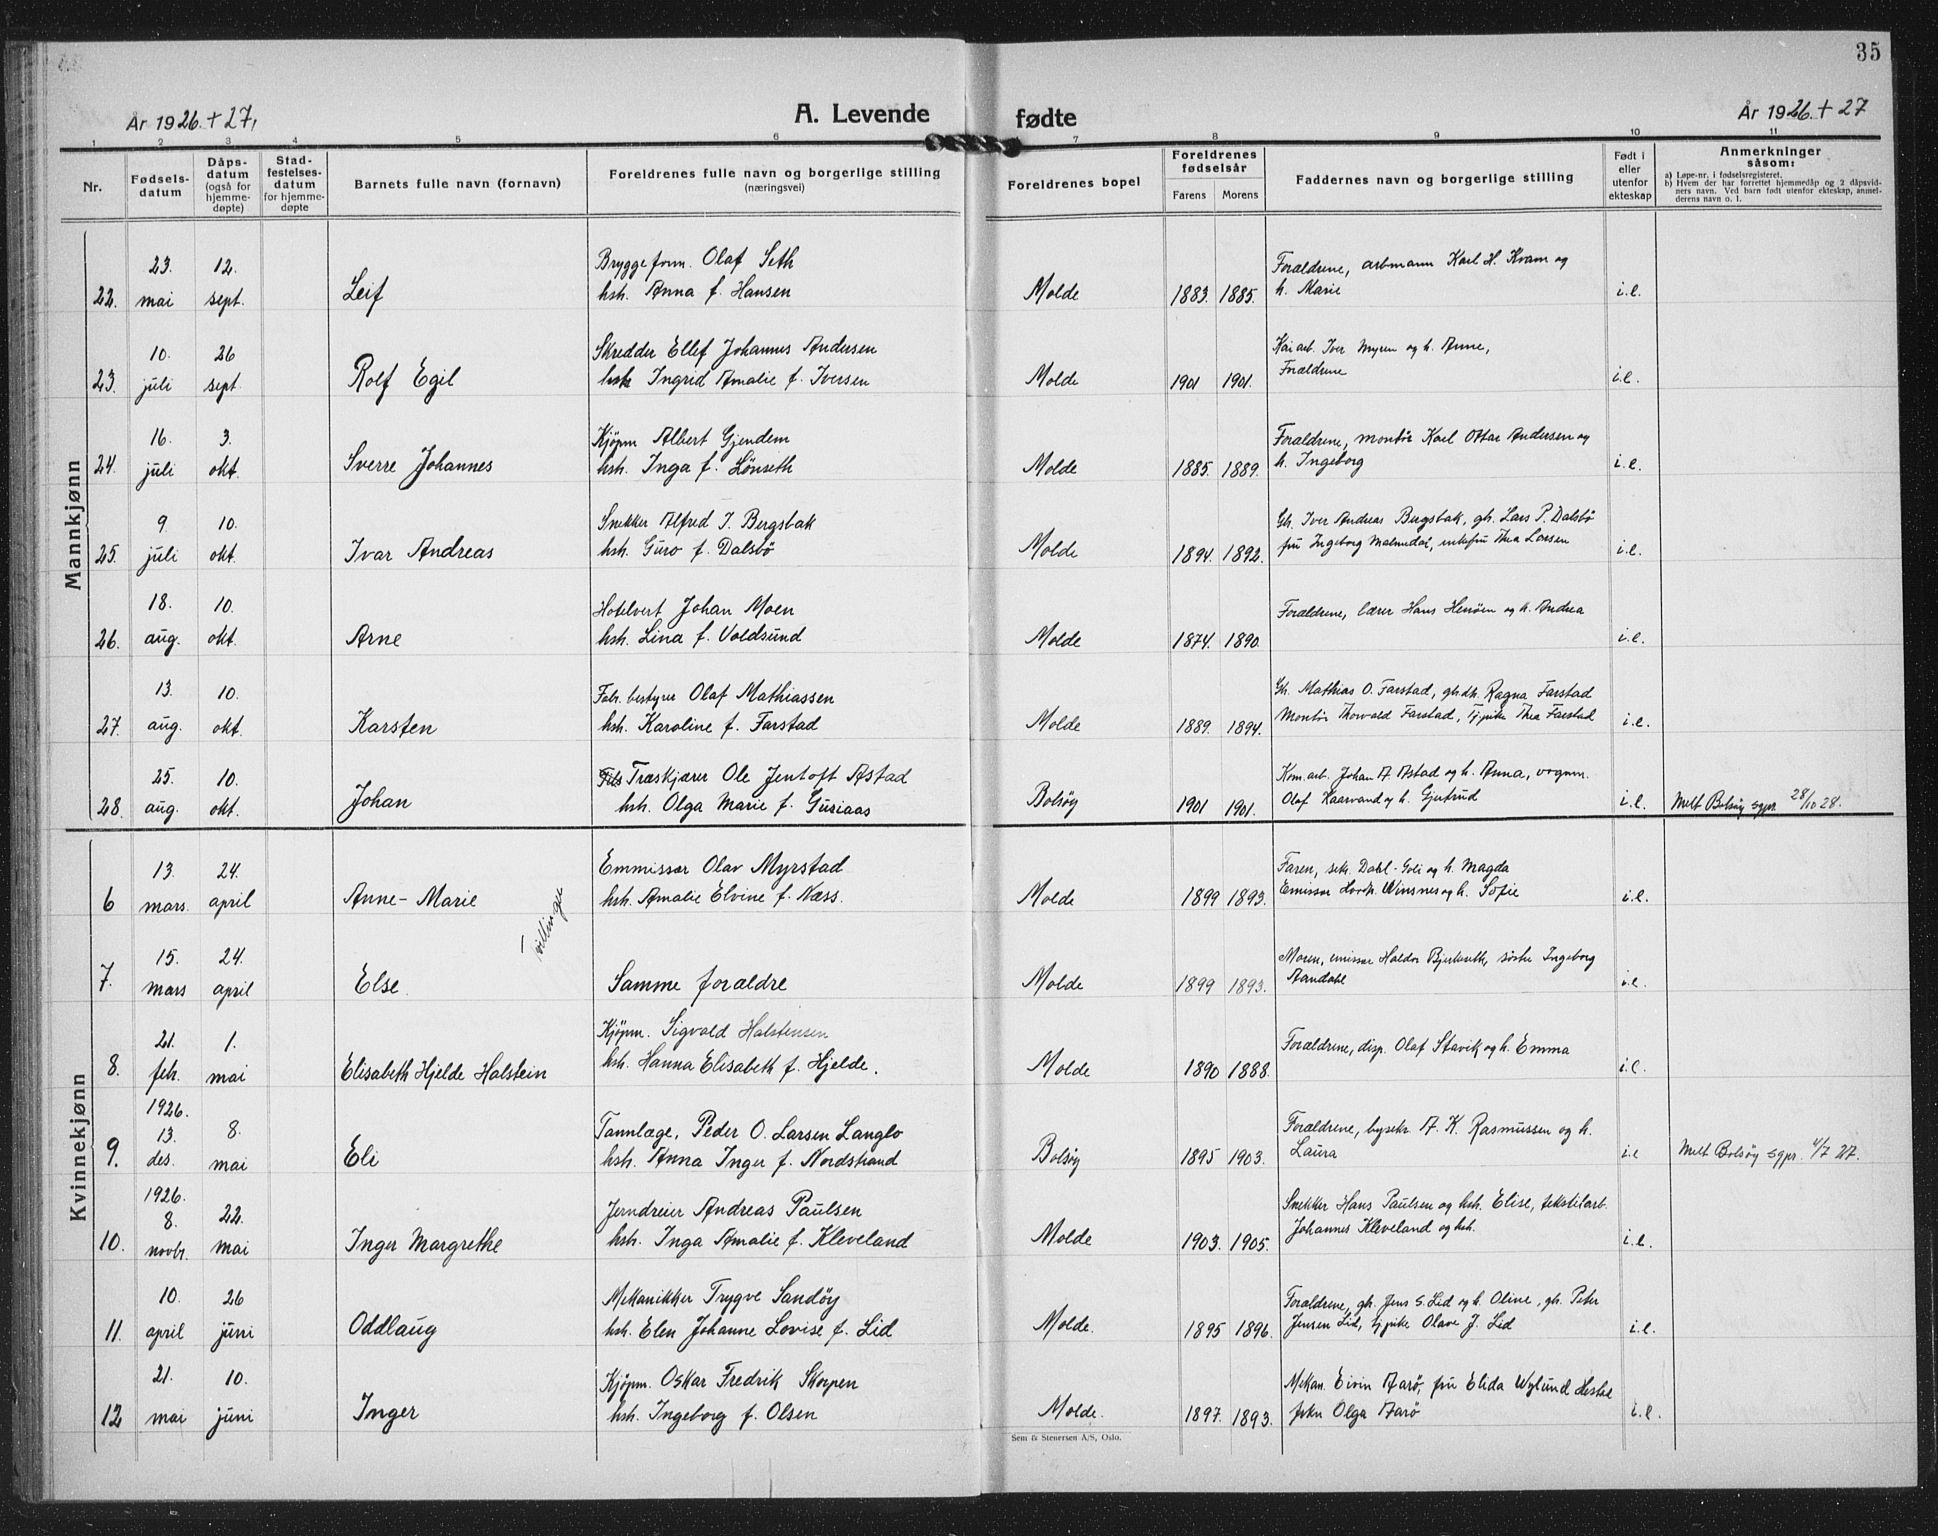 35
År 1926 + 27,
A. Levende fødte
År 1926 + 27
1 2 3 4 5 6 7 8 9 10 11
Nr.
Fødsels-
datum
Dåps-
datum
(også for
hjemme-
døpte)
Stad-
festelses-
datum
for hjemme-
døpte
Barnets fulle navn (fornavn)
Foreldrenes fulle navn og borgerlige stilling
(næringsvei)
Foreldrenes bopel
Foreldrenes
fødselsår
Farens Morens
Faddernes navn og borgerlige stilling
Født i
eller
utenfor
ekteskap
Anmerkninger
såsom:
a) Løpe-nr. i fødselsregisteret.
b) Hvem der har forrettet hjemmedåp og 2 dåpsvid-
ners navn. Ved barn født utenfor ekteskap, anmel-
derens navn o. l.
Mannkjønn
23. 12. Bryggeform. Olaf Seth Forældrene, arbmann Karl H. Kvam og
22. mai sept. Leif hsh. Anna f. Hansen Molde 1883. 1885. h. Marie i.e.
10. 26 Skredder Ellef Johannes Andersen Kaiarb. Iver Myren og h. Anne,
23. juli sept. Rolf Egil hsh Ingrid Amalie f. Iversen Molde 1901 1901. Forældrene i.e.
16. 3. Kjøpm Albert Gjendem Forældrene, montør Karl Ottar Andersen og
24. juli okt. Sverre Johannes hsh. Inga f. Lønseth Molde 1885. 1889. h. Ingeborg i.e.
9. 10. Snekker Alfred I. Bergsbak Gh. Iver Andreas Bergsbak, gh. Lars P. Dalsbø
25. juli okt. Ivar Andreas hsh. Guro f. Dalsbø Molde 1894. 1892. fru Ingeborg Malmedal, enkefru Thea Larsen i.e.
18. 10. Hotelvert Johan Moen Forældrene, lærer Hans Henøen og h. Andrea
26. aug. okt. Arne hsh. Lina f. Voldsund Molde 1874. 1890. i.e.
13. 10. Fabr. bestyrer Olaf Mathiassen Gh. Mathias O. Farstad, gh.dt. Ragna Farstad
27. aug. okt. Karsten hsh. Karoline f. Farstad Molde 1889. 1894. Montør Thorvald Farstad, tj.pike Thea Farstad i.e.
25. 10. Træskjærer Ole Jentoft Astad Kom.arb. Johan A. Astad og h. Anna, vognm.
28. aug. okt. Johan hsh. Olga Marie f. Gusiaas Bolsøy 1901 1901. Olaf Haarvand og h. Gjertrud i.e. Melt Bolsøy sgpr. 28/10 28.
Kvinnekjønn
13. 24. Emmissær Olav Myrstad Faren, sekr. Dahl-Goli og h. Magda
6 mars. april Anne-Marie hsh. Amalie Elvine f. Næss. Molde 1899 1893. Emissær Winsnes og h. Sofie i.e.
Tvillinger
15. 24. Moren, emissær Haldor Bjerkseth, søster Ingeborg
7. mars april Else. Samme forældre Molde 1899 1893. Aandahl i.e.
21. 1. Kjøpm. Sigvald Halstensen Forældrene, disp. Olaf Stavik og h. Emma
8. feb. mai Elisabeth Hjelde Halstein hsh. Hanna Elisabeth f. Hjelde. Molde 1890 1888. i.e.
1926.
13. 8. Tannlæge, Peder O. Larsen Langlo Forældrene, bysekr. A. K. Rasmussen og h.
9. des. mai Eli hsh. Anna Inger f. Nordstrand Bolsøy 1895 1903. Laura i.e Melt Bolsøy sgpr. 4/7 27.
1926.
8. 22. Jerndreier Andreas Paulsen Snekker Hans Paulsen og hsh. Elise, tekstilarb.
10. novbr. mai Inger Margrethe hsh. Inga Amalie f. Kleveland Molde 1903. 1905. Johannes Kleveland og hsh. i.e.
10. 26 Mekanikker Trygve Sandøy Forældrene, gh. Jens S. Lid og h. Oline, gh. Peter
11. april juni Oddlaug hsh. Elen Johanne Lovise f. Lid Molde. 1895 1896. Jensen Lid, tj.pike Olave J. Lid i.e.
21. 10. Kjøpm. Oskar Fredrik Skorpen Mekan. Eivin Aarø, fru Elida Wylund
12 mai juni Inger hsh. Ingeborg f. Olsen Molde. 1897. 1893. frkn Olga Aarø i.e.
Sem & Stenersen A/S, Oslo.